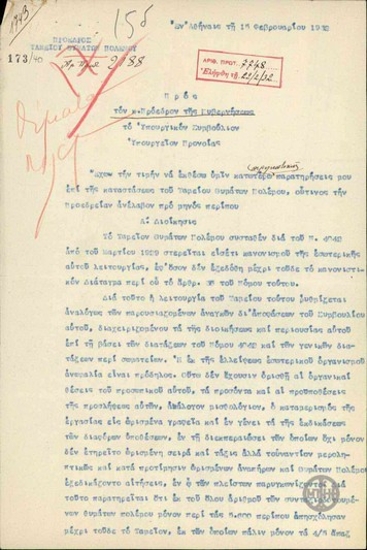 1743
15δ
Ἐν Ἀθήναις τῇ 15 Φεβρουαρίου 1932
ΠΡΟΕΔΡΟΣ
ΤΑΜΕΙΟΥ ΘΥΜΑΤΩΝ ΠΟΛΕΜΟΥ
173/40
88
ΑΡΙΘ. ΠΡΩΤ. 7748
Ἐλήφθη τῇ 22/2/32
Πρὸς
τὸν κ. Πρόεδρον τῆς Κυβερνήσεως
τὸ Ὑπουργικὸν Συμβούλιον
Ὑπουργεῖον Προνοίας
Θύματα
Ἔχων τὴν τιμὴν νὰ ἐκθέσω ὑμῖν κατωτέρω παρατηρήσεις μου
ἐπὶ τῆς καταστάσεως τοῦ Ταμείου Θυμάτων Πολέμου, οὗτινος τὴν
Προεδρείαν ἀνέλαβον πρὸ μηνὸς περίπου
Α! Διοίκησις
Τὸ Ταμεῖον Θυμάτων Πολέμου συσταθὲν διὰ τοῦ Ν.
ἀπὸ τοῦ Μαρτίου 1929 στερεῖται εἰσέτι κανονισμοῦ τῆς ἐσωτερικῆς
αὐτοῦ λειτουργίας, ἐφ'ὅσον δὲν ἐξεδόθη μέχρι τοῦδε τὸ κανονιστικ
κὸν Διάταγμα περὶ οὗ τὸ ἄρθρ. τοῦ Νόμου τούτου.
Διὰ τοῦτο ἡ λειτουργία τοῦ Ταμείου τούτου ρυθμίζεται
ἀναλόγως τῶν παρουσιαζομένων ἀναγκῶν δι'ἀποφάσεων τοῦ Συμβουλίου
αὐτοῦ, διαχειριζομένου τὰ τῆς διοικήσεως καὶ περιουσίας αὐτοῦ
ἐπὶ τῇ βάσει τῶν διατάξεων τοῦ Νόμου καὶ τῶν γενικῶν δια-
τάξεων περὶ σωματείων. Ἡ ἐκ τῆς ἐλλείψεως ἐσωτερικοῦ ὀργανισμοῦ
ἀνωμαλία εἶναι πρόδηλος. Οὕτω δὲν ἔχουσιν ὁρισθῆ αἱ ὀργανικαὶ
θέσεις τοῦ προσωπικοῦ αὐτοῦ, τὰ προσόντα καὶ αἱ προϋποθέσεις
τῆς προσλήψεως αὐτῶν, ἀνάλογον μισθολόγιον, ὁ καταμερισμὸς τῆς
ἐργασίας εἰς ὡρισμένα γραφεῖα καὶ ἐν γένει τὰ τῆς ἐκδικάσεως
τῶν διαφόρων ὑποθέσεων, ἐν τῇ διεκπεραιώσει τῶν ὁποίων ὄχι μόνον
δὲν ἐτηρεῖτο ὡρισμένη σειρὰ καὶ τάξις ἀλλὰ τοὐναντίον μερολη-
πτικῶς καὶ κατὰ προτίμησιν ὡρισμένων ἀναπήρων καὶ θυμάτων Πολέμου
ἐξεδικάζοντο αἰτήσεις,
τοῦτο παρατηρεῖται ὅτι ἐκ τοῦ ὅλου ἀριθμοῦ τῶν
θυμάτων πολέμου μόνον τὰς 5.500 περίπου ἀπησχόλησαν
μέχρι τοῦδε τὸ Ταμεῖον, ἐκ τῶν ὁποίων πάλιν μόνον τὰ 4/5 ἅπαξ